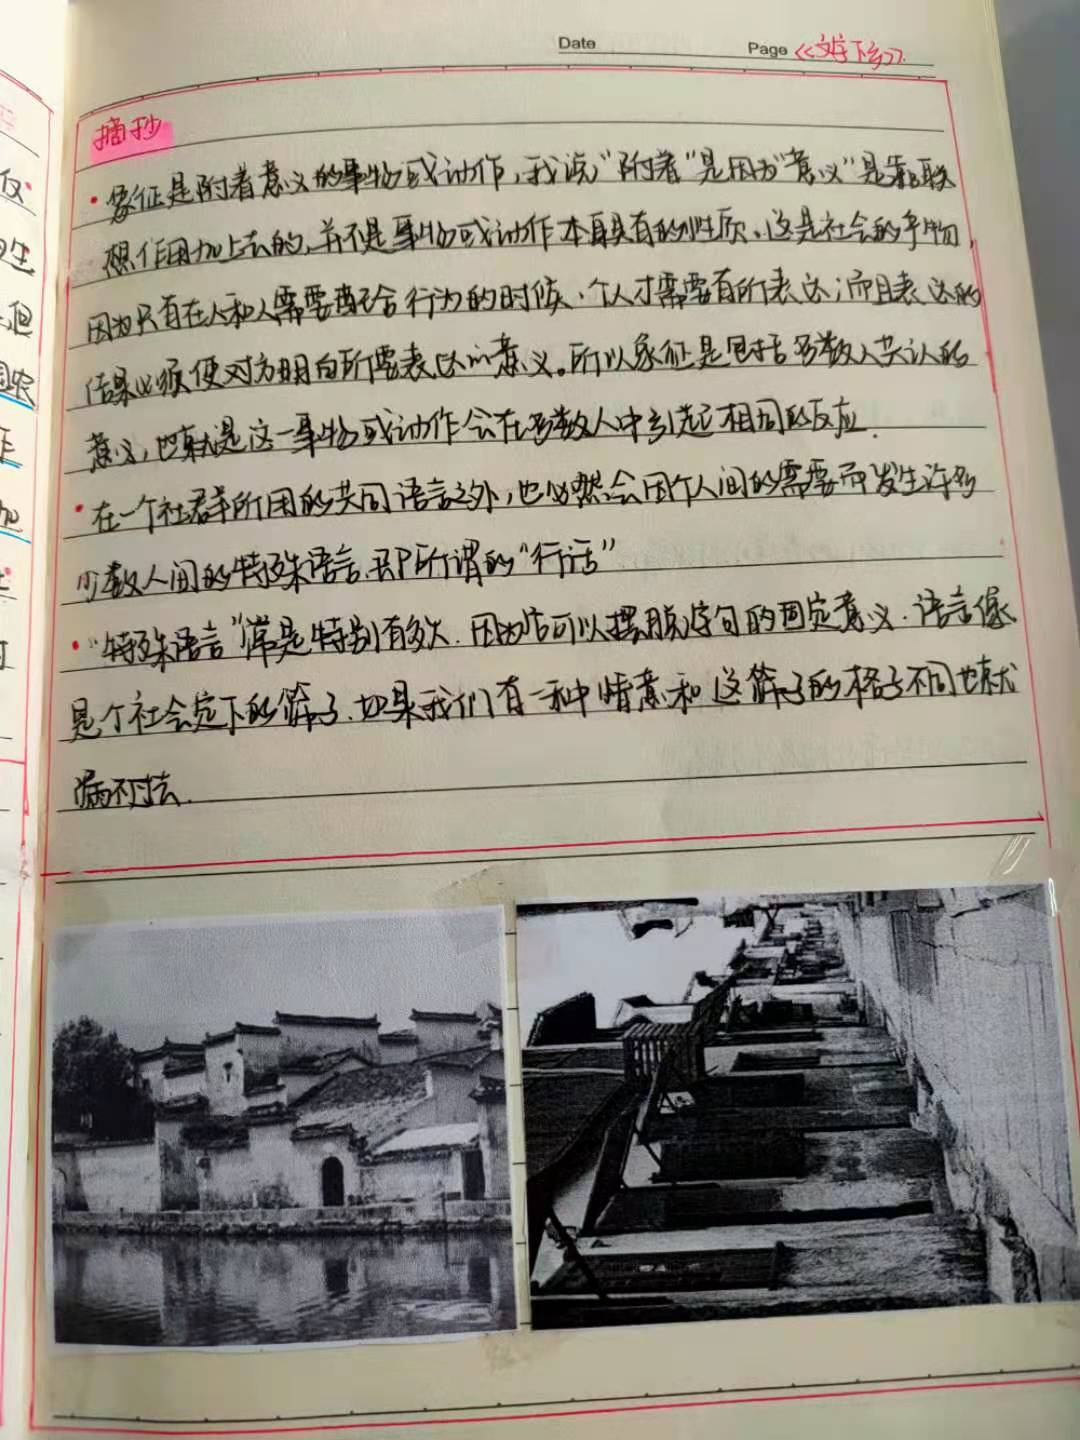 Date
Page 《文字下乡》
摘抄
·象征是附着意义的事物或动作,我说"附着"是因为"意义"是靠联
想作用加上去的,并不是事物或动作本身具有的性质、这是社会的产物,
因为只有在人和人需要配合行为的时候、个人才需要有所表达;而且表达的
结果必须使对方明白所要表达的意义。所以象征是包括多数人共认的
意义,也就是这一事物或动作会在多数人中引起相同的反应.
·在一个社群所用的共同语言之外,也必然会因个人间的需要而发生许多
少数人间的特殊语言,即所谓的"行话"
·"特殊语言"常是特别有效.因为它可以摆脱字句的固定意义.语言像
是个社会定下的筛子.如果我们有一种情意和这筛子的格子不同也就
漏不过去.
仅
但
加